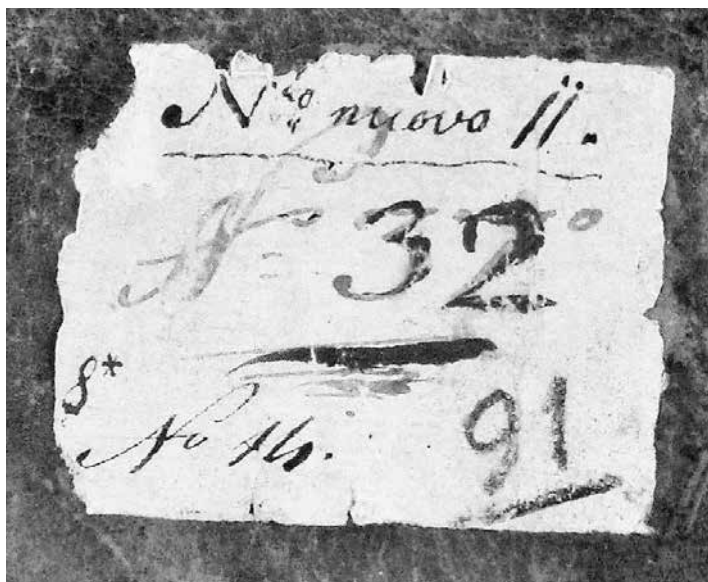 Nro nuovo 11.
No 32
8*
No 14.
91